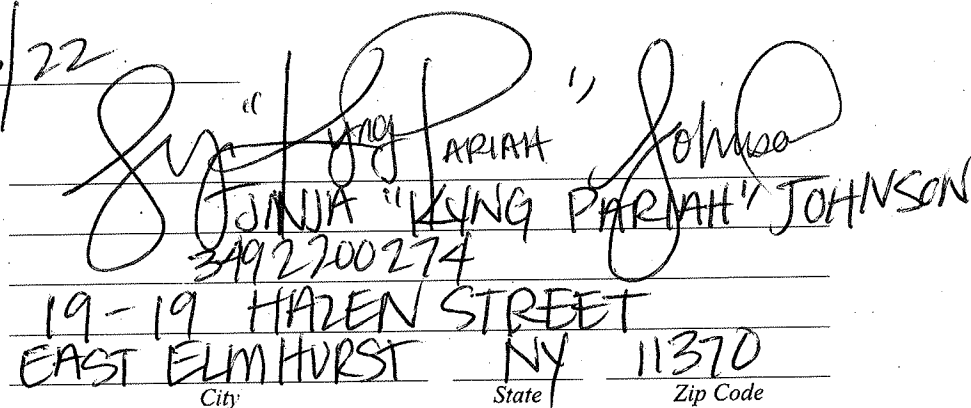 /22
"Kyng PARIAH" Johnson
JINJA "KYNG PARIAH" JOHNSON
3492200274
19-19 HAZEN STREET
EAST ELMHURST NY 11370
City State Zip Code